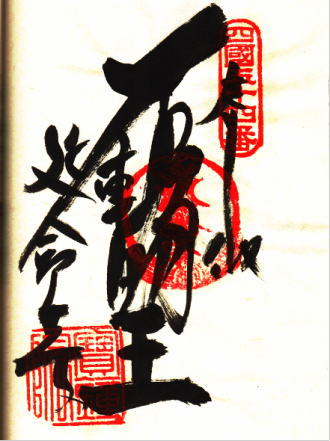 四國五十四番
奉納
不動明王
延命寺